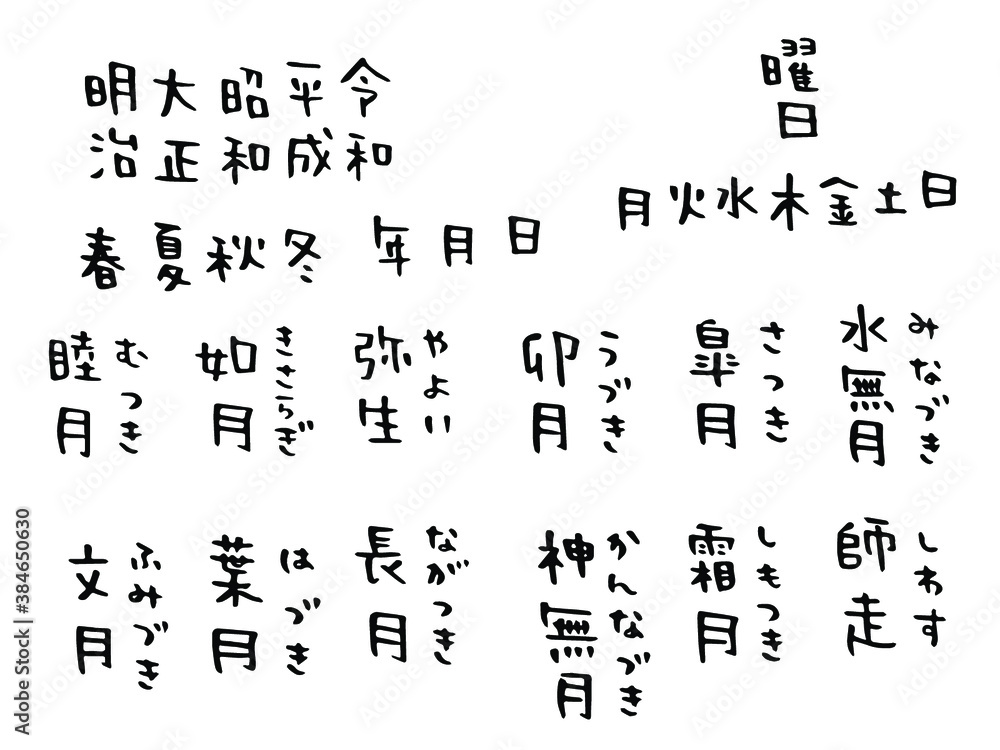 明治
大正
昭和
平成
令和
曜日
月火水木金土日
春夏秋冬
年月日
睦月
むつき
如月
きさらぎ
弥生
やよい
卯月
うづき
皐月
さつき
水無月
みなづき
文月
ふみづき
葉月
はづき
長月
ながつき
神無月
かんなづき
霜月
しもつき
師走
しわす
Adobe Stock | #384650630